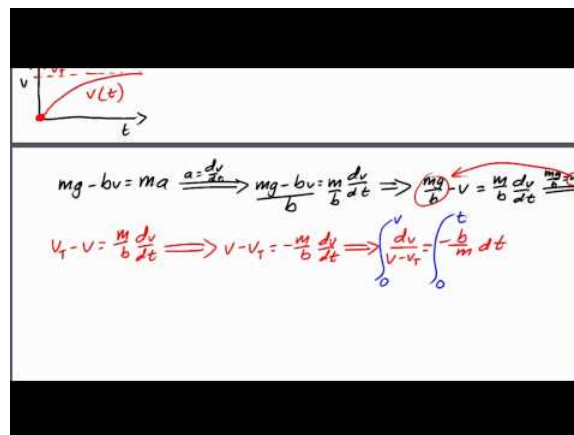 v
v(t)
t
mg - bv = ma  a = dv/dt ⟹ (mg - bv)/b = m/b dv/dt ⟹ mg/b - v = m/b dv/dt  mg/b =
v_T - v = m/b dv/dt ⟹ v - v_T = -m/b dv/dt ⟹ ∫₀ᵛ dv/(v - v_T) = ∫₀ᵗ -b/m dt